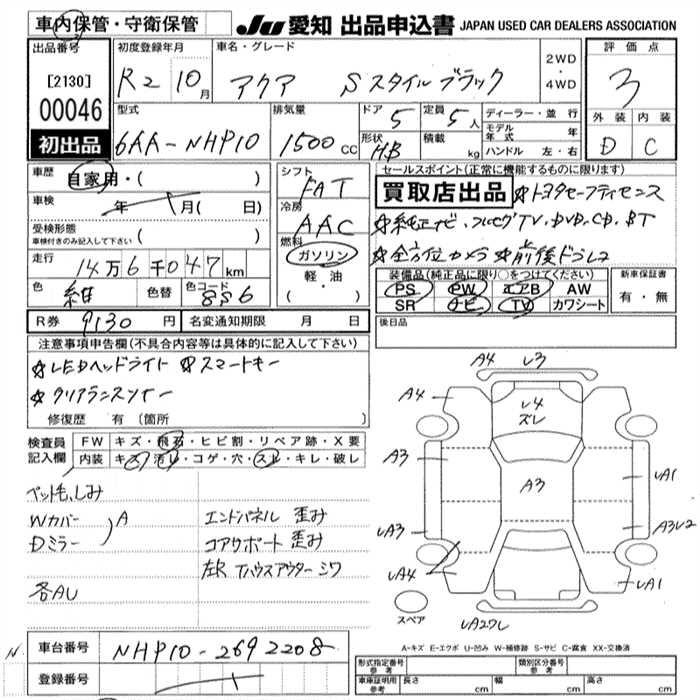 車内保管・守衛保管
JU 愛知 出品申込書 JAPAN USED CAR DEALERS ASSOCIATION
出品番号
[2130]
00046
初出品
初度登録年月
R2 10月
車名・グレード
アクア Sスタイルブラック
2WD
・
4WD
評価点
3
外装 内装
D C
型式
6AA-NHP10
排気量
1500cc
ドア
5
定員
5人
形状
HB
積載
kg
ディーラー・並行
モデル年式 年
ハンドル 左・右
車歴
自家用・( )
車検
年 月( 日)
受検形態
車検付きのみ記入して下さい ( )
走行
14万6千047km
色
紺
色替
色コード
8S6
シフト
FAT
冷房
AAC
燃料
ガソリン
軽・油
( ・ )
セールスポイント(正常に機能するものに限ります)
買取店出品 ☆トヨタセーフティセンス
☆純正ナビ、フルセグTV、DVD、CD、BT
☆全方位カメラ ☆前後ドラレコ
装備品(純正品に限り○をつけてください)
PS PW エアB AW
SR ナビ TV カワシート
新車保証書
有・無
後日品
R券 9130円
名変通知期限 月 日
注意事項申告欄(不具合内容等は具体的に記入して下さい)
☆LEDヘッドライト ☆スマートキー
☆クリアランスソナー
修復歴 有 (箇所 )
検査員
記入欄
FW キズ・飛石・ヒビ割・リペア跡・X要
内装 キズ・汚レ・コゲ・穴・スレ・キレ・破レ
ペット毛、しみ
Wカバー
Dミラー
A
各AU
エンドパネル 歪み
コアサポート 歪み
左R Tハウスアウター シワ
A4 レ3
A4
レ4
ズレ
A3
A3
UA1
UA3
A3U2
UA4
UA1
スペア
A-キズ E-エクボ U-凹み W-補修跡 S-サビ C-腐食 XX-交換済
N.
車台番号 NHP10-2692208
登録番号
形式指定番号
参考
類別区分番号
参考
車庫証明用
参考
長さ cm 幅 cm 高さ cm